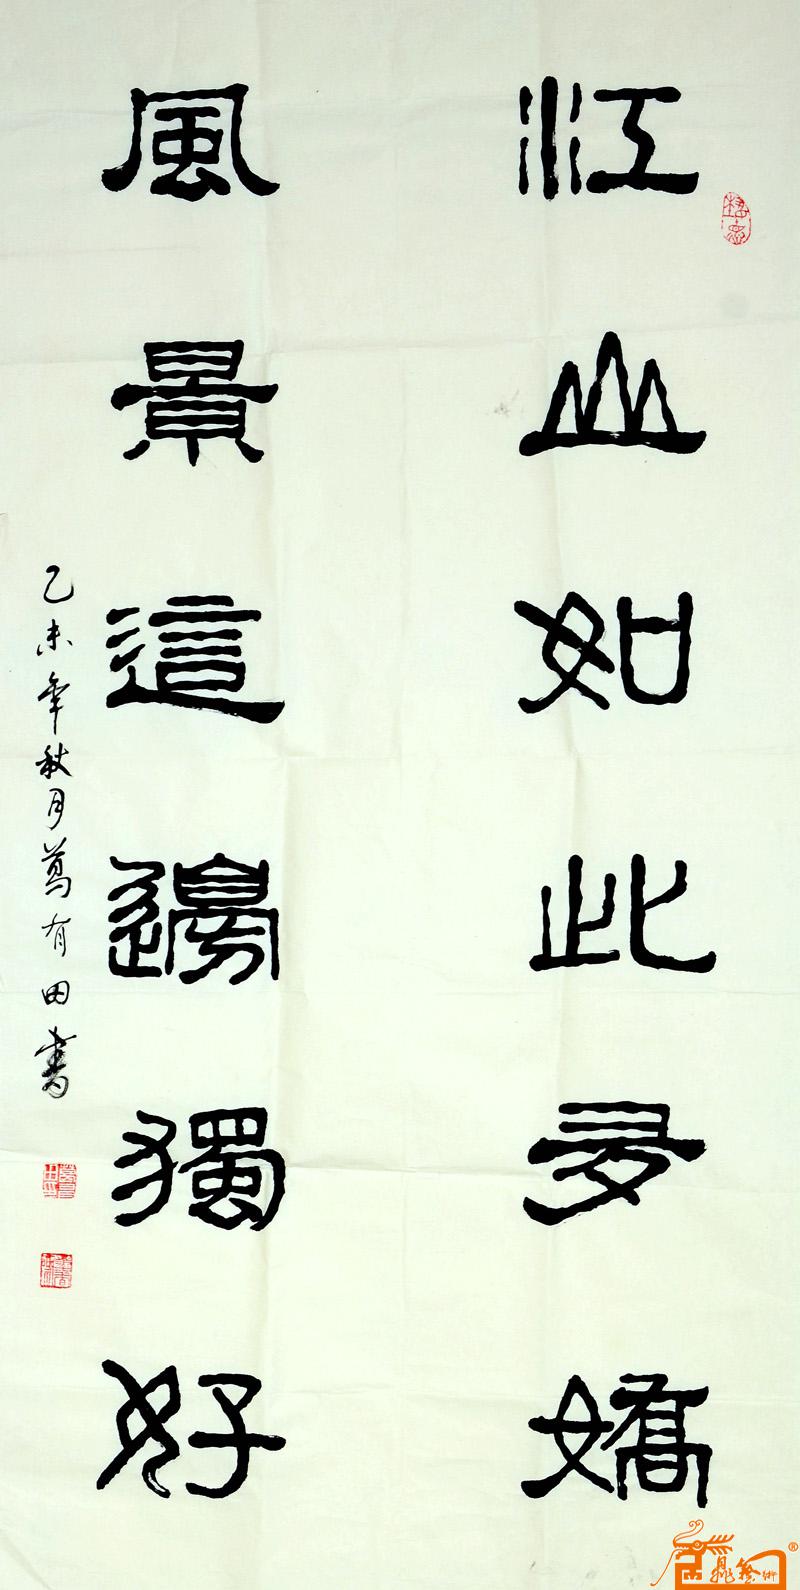 江山如此多嬌
風景這邊獨好
乙未年秋月葛有田書